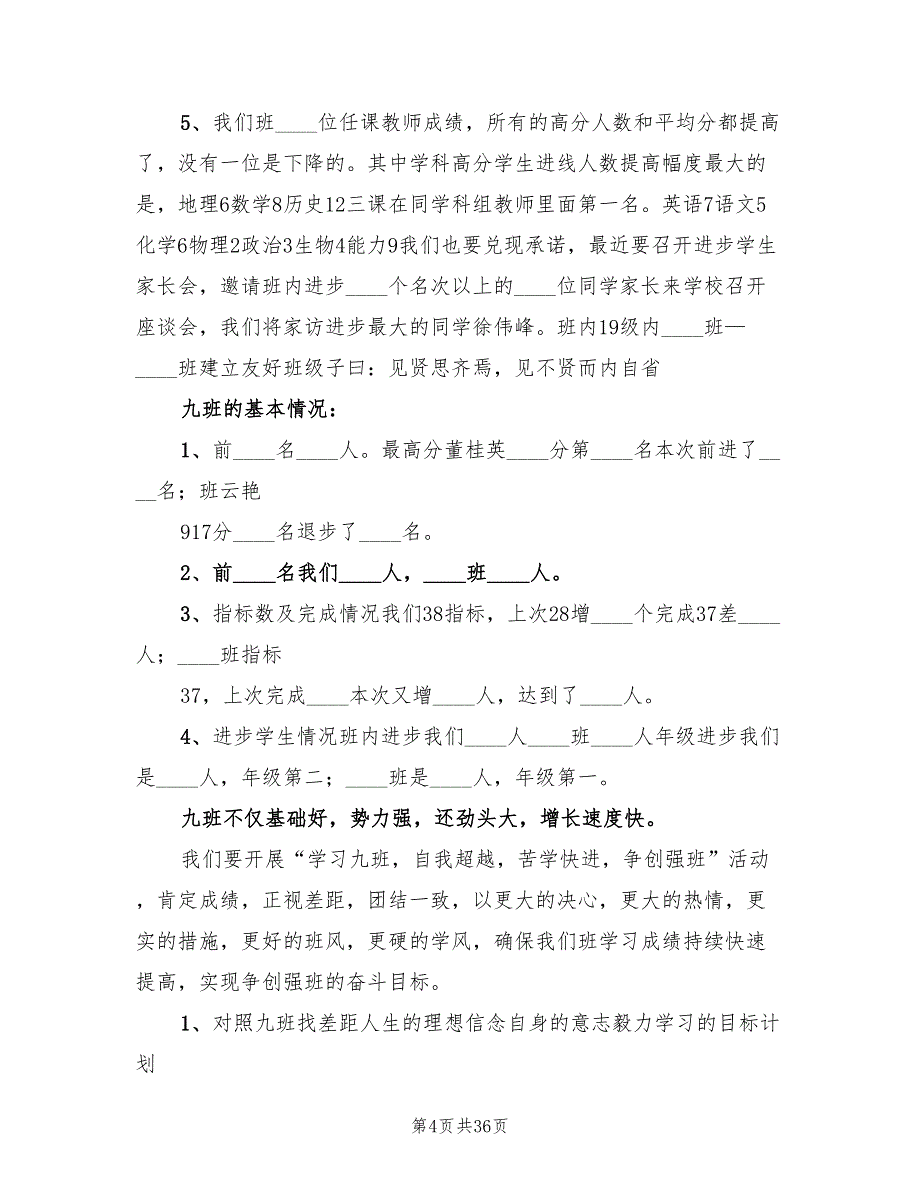 5、我们班____位任课教师成绩，所有的高分人数和平均分都提高
了，没有一位是下降的。其中学科高分学生进线人数提高幅度最大的
是，地理6数学8历史12三课在同学科组教师里面第一名。英语7语文5
化学6物理2政治3生物4能力9我们也要兑现承诺，最近要召开进步学生
家长会，邀请班内进步____个名次以上的____位同学家长来学校召开
座谈会，我们将家访进步最大的同学徐伟峰。班内19级内____班—
____班建立友好班级子曰：见贤思齐焉，见不贤而内自省
九班的基本情况：
1、前____名____人。最高分董桂英____分第____名本次前进了__
__名；班云艳
917分____名退步了____名。
2、前____名我们____人，____班____人。
3、指标数及完成情况我们38指标，上次28增____个完成37差____
人；____班指标
37，上次完成____本次又增____人，达到了____人。
4、进步学生情况班内进步我们____人____班____人年级进步我们
是____人，年级第二；____班是____人，年级第一。
九班不仅基础好，势力强，还劲头大，增长速度快。
我们要开展“学习九班，自我超越，苦学快进，争创强班”活动
，肯定成绩，正视差距，团结一致，以更大的决心，更大的热情，更
实的措施，更好的班风，更硬的学风，确保我们班学习成绩持续快速
提高，实现争创强班的奋斗目标。
1、对照九班找差距人生的理想信念自身的意志毅力学习的目标计
划
第4页共36页